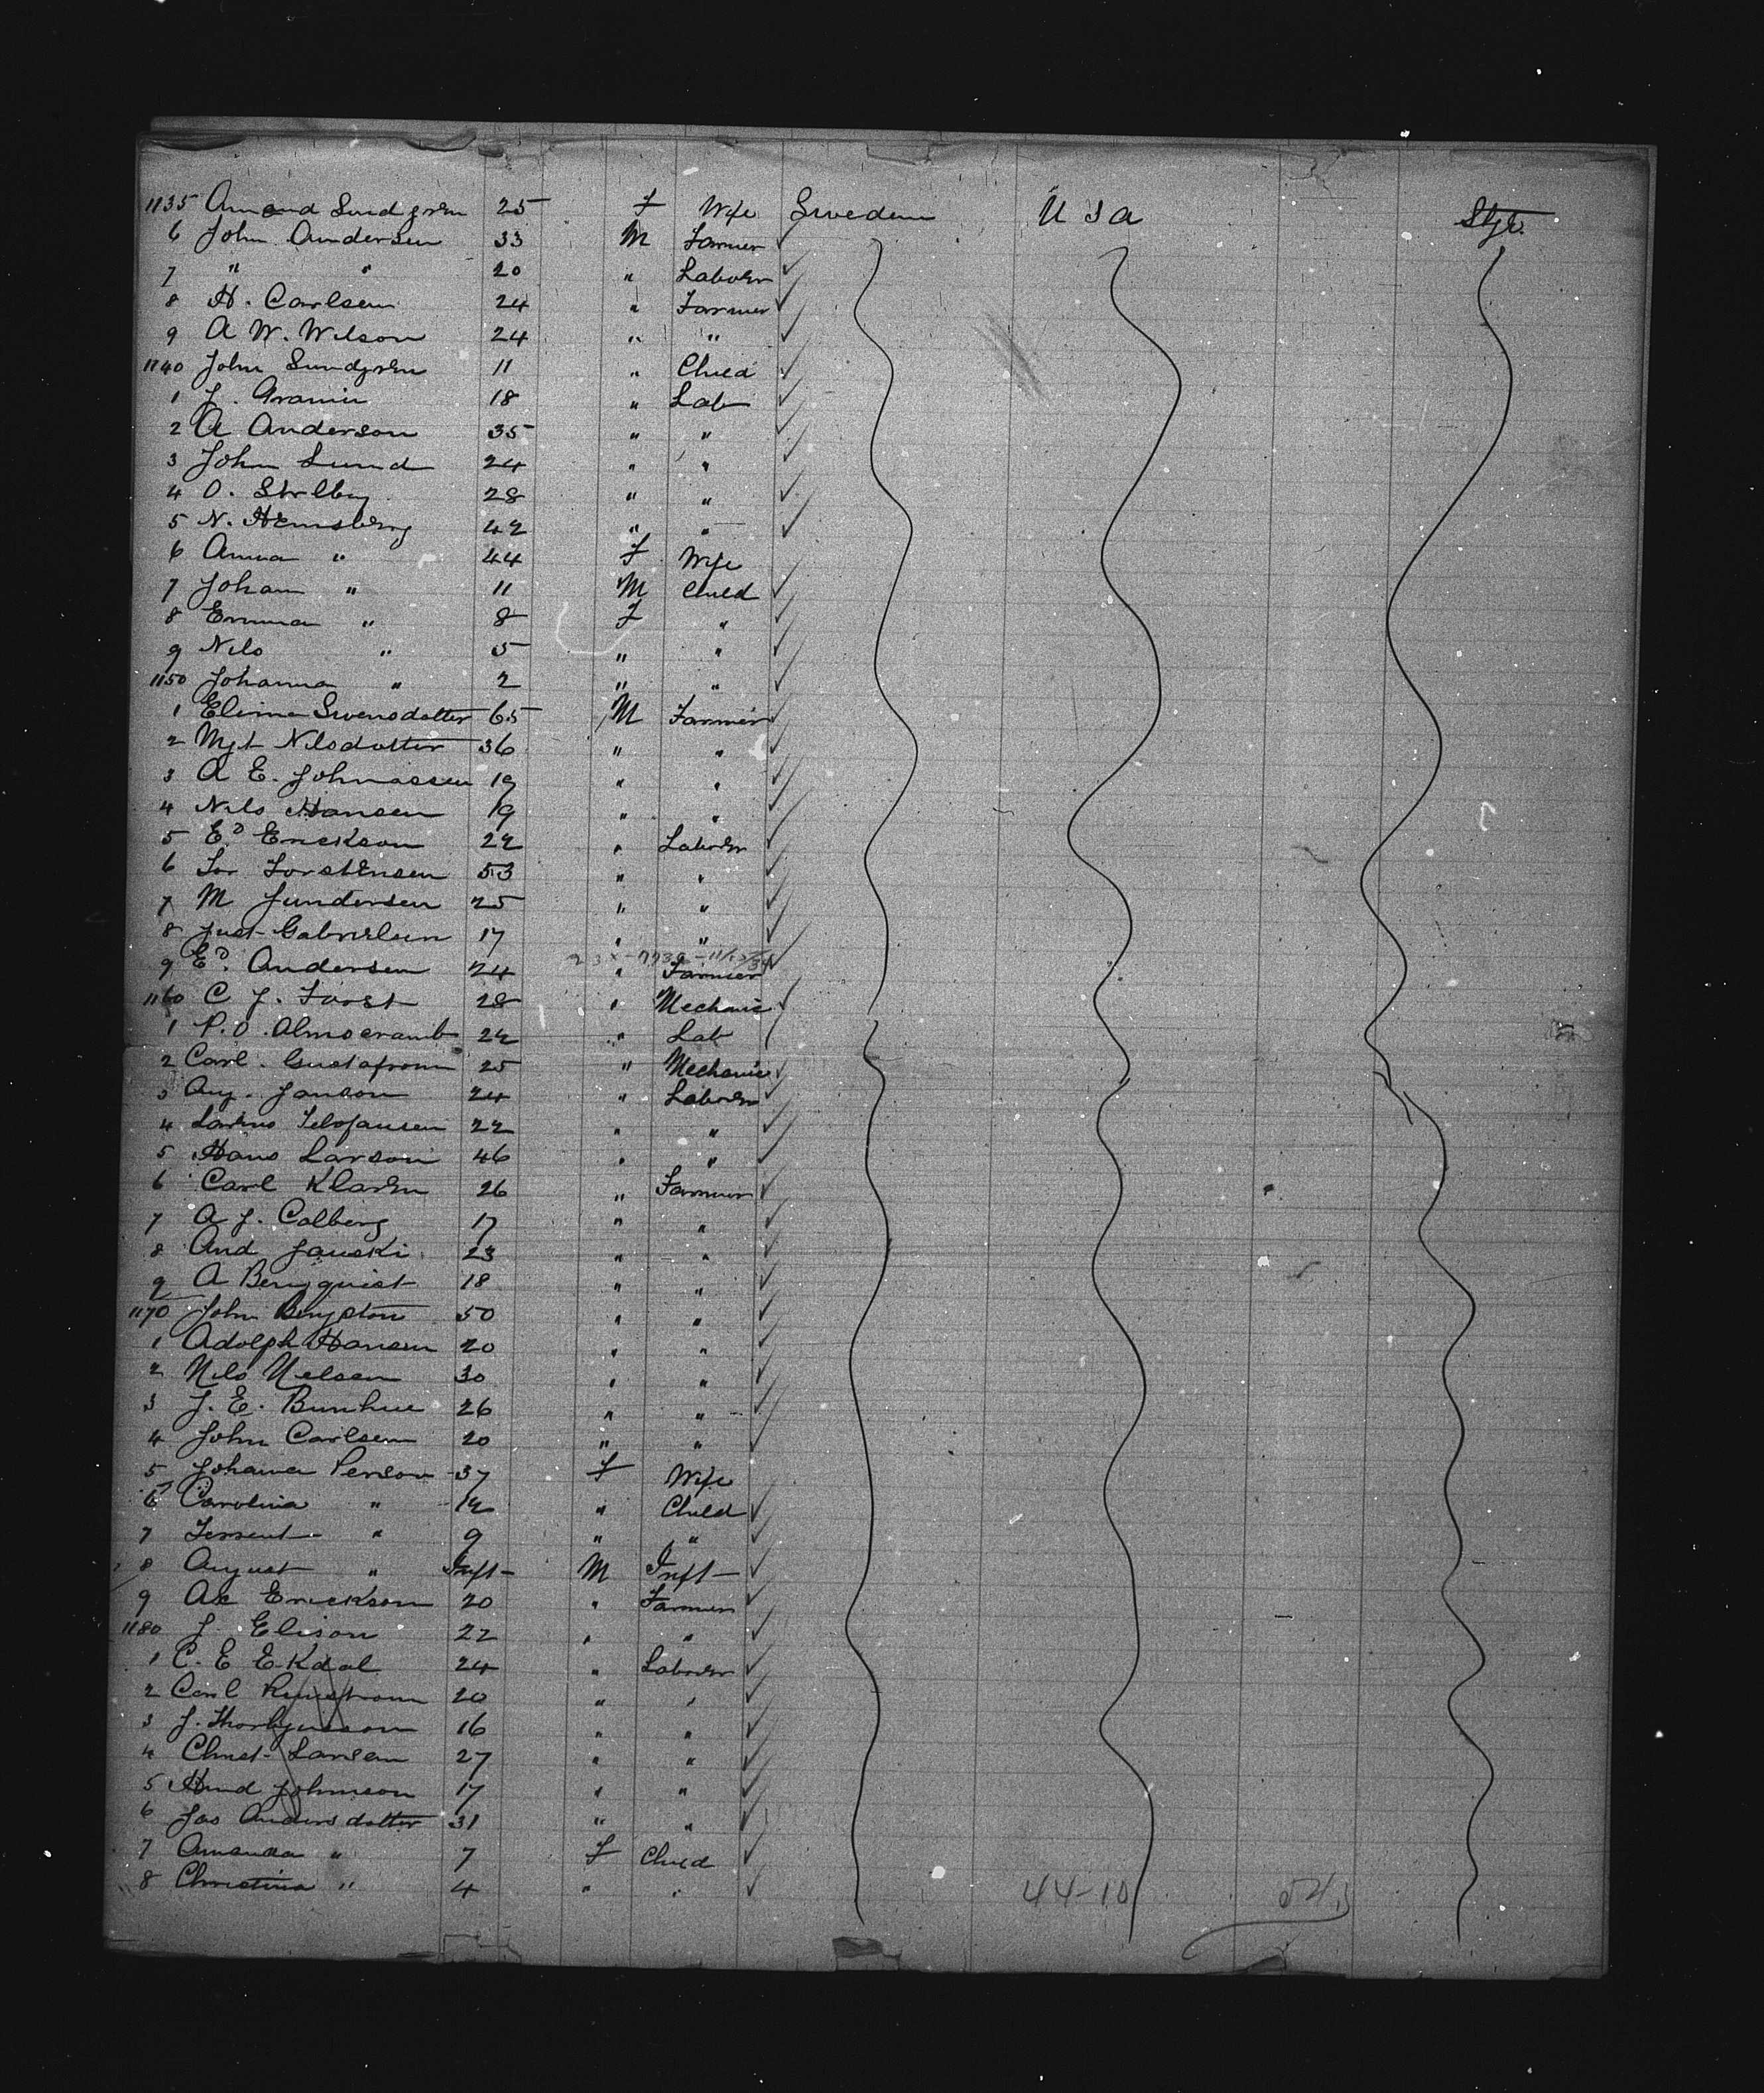 1135 Amand Sundgren 25 F Wife Sweden U S A Stge.
6 John Andersen 33 M Farmer
7 " " 20 " Laborer
8 H. Carlsen 24 " Farmer
9 A W. Wilson 24 " "
1140 John Sundgren 11 " Child
1 J. Gramin 18 " Lab
2 A Anderson 35 " "
3 John Lund 24 " "
4 O. 28 " "
5 N. Hemsberg 42 " "
6 Anna " 44 F Wife
7 Johan " 11 M Child
8 Emma " 8 F "
9 Nils " 5 " "
1150 Johanna " 2 " "
1 Elima Swensdotter 65 M Farmer
2 Mgt Nilsdotter 36 " "
3 A E. Johnassen 19 " "
4 Nils Hansen 19 " "
5 Ed Erickson 22 " Laborer
6 Tor Torstensen 53 " "
7 M Gundersen 25 " "
8 Just Gabrielsen 17 " "
9 Ed. Andersen 24 " Farmer
1160 C J. Forst 28 " Mechanic
1 P. O. 22 " Lab
2 Carl. Gustafrom 25 " Mechanic
3 Aug. Janson 24 " Laborer
4 22 " "
5 Hans Larson 46 " "
6 Carl Klaren 26 " Farmer
7 A J. Calberg 17 " "
8 And Janski 23 " "
9 A Bergquist 18 " "
1170 John Bengston 50 " "
1 Adolph Hansen 20 " "
2 Nils Nelsen 30 " "
3 J. E. 26 " "
4 John Carlsen 20 " "
5 Johanna Person 37 F Wife
6 Carolina " 12 " Child
7 " 9 " "
8 August " Inft M Inft
9 Ax Erickson 20 " Farmer
1180 J Elison 22 " "
1 C. E Ekdal 24 " Laborer
2 Carl 20 " "
3 J. 16 " "
4 Christ Larsen 27 " "
5 Johnson 17 " "
6 Jas Andersdotter 31 " "
7 Amanda " 7 F Child
8 Christina " 4 " "
44-10